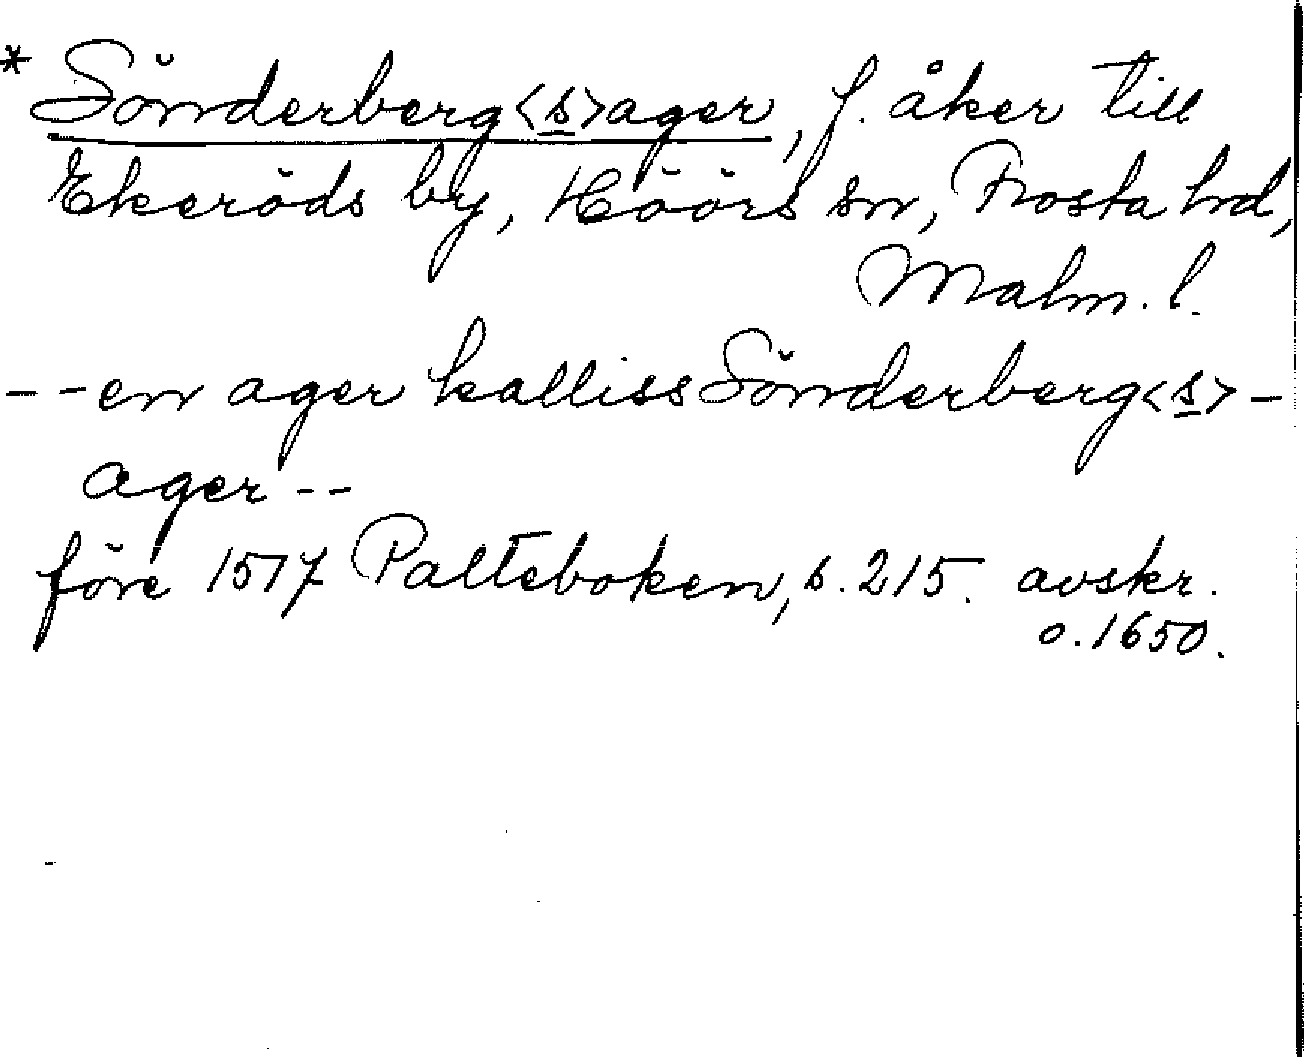 * Sönderberg<s>ager, f. åker till
Ekeröds by, Höörs sn, Frosta hd,
Malm. l.
- - en ager kalliss Sönderberg<s> -
ager - -
före 1517 Palteboken, s. 215. avskr.
o. 1650.